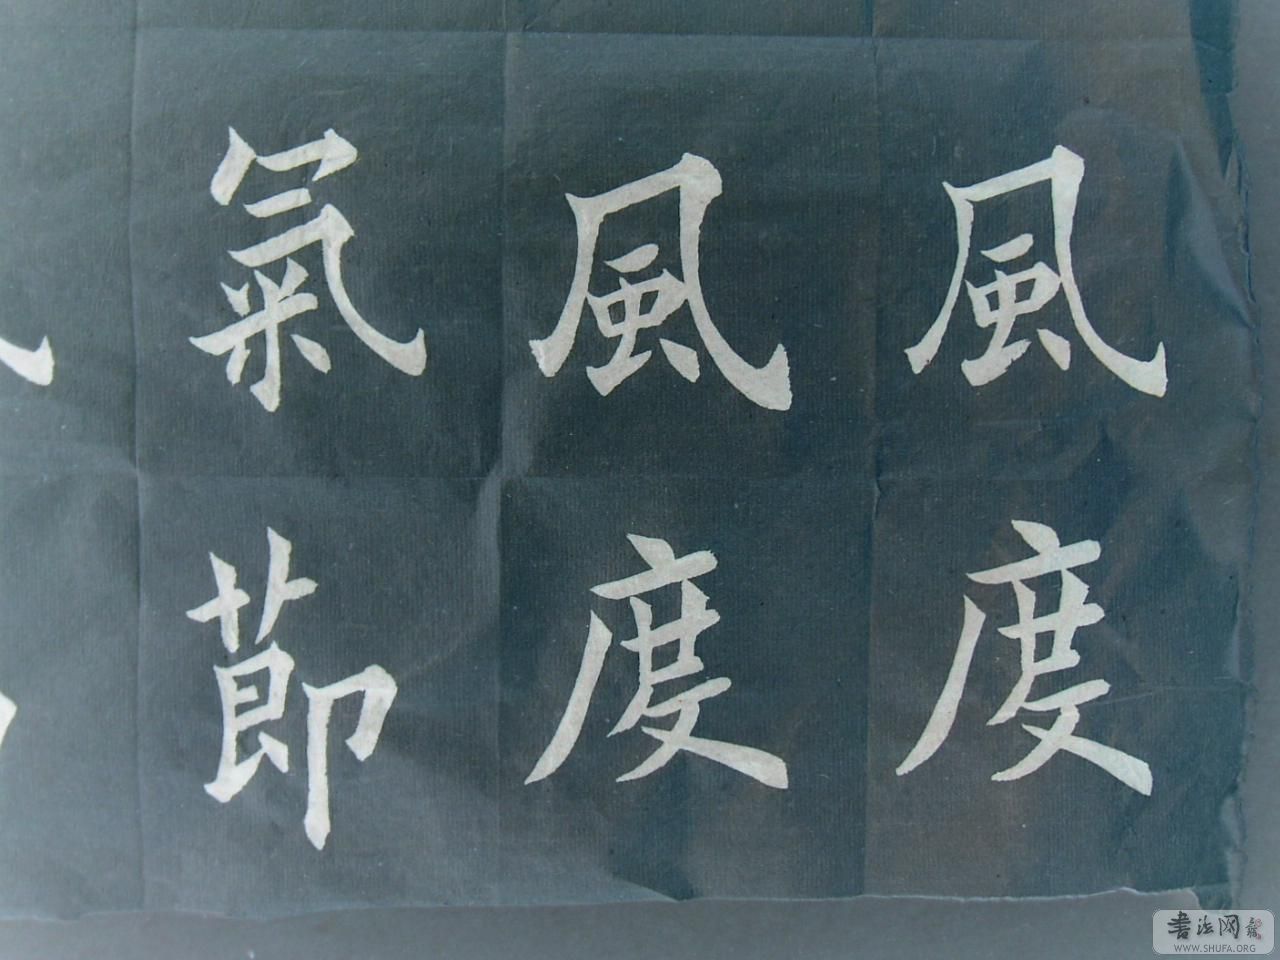 風度
風度
氣節
书法网
WWW.SHUFA.ORG